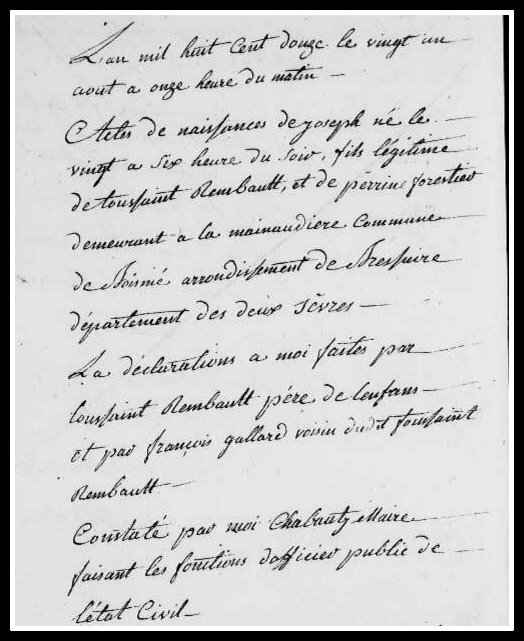 L'an mil huit Cent douze le vingt un
aout a onze heure du matin
Actes de naissances de joseph né le
vingt a six heure du soir, fils légitime
de toussaint Rembault, et de perrine forestier
demeurant a la mainaudiere Commune
de Boismé arrondissement de Bressuire
département des deux Sèvres
La déclarations a moi faites par
toussaint Rembault pére de lenfans
et par françois gallard voisin dudit toussaint
Rembault
Constaté par moi Chabauty Maire
faisant les fonctions dofficier public de
l'état Civil